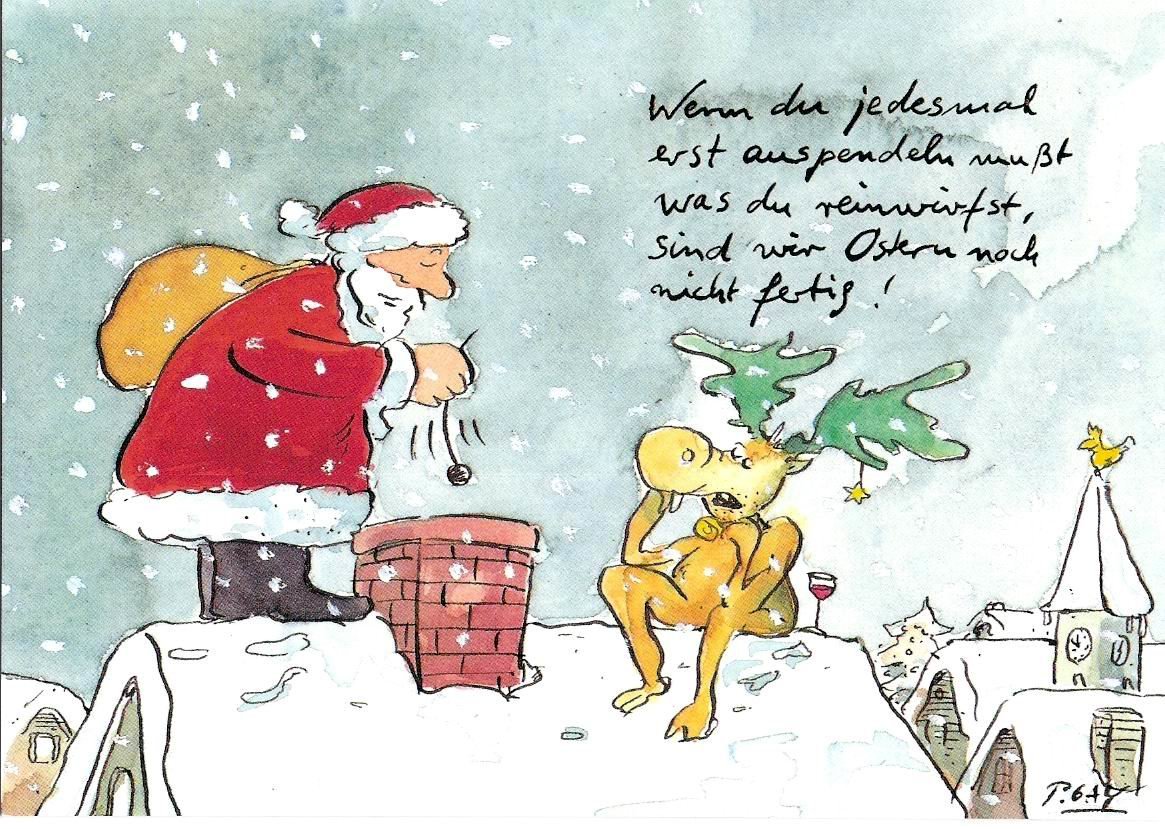 Wenn du jedesmal
erst auspendeln mußt
was du reinwirfst,
sind wir Ostern noch
nicht fertig!
P. GAY